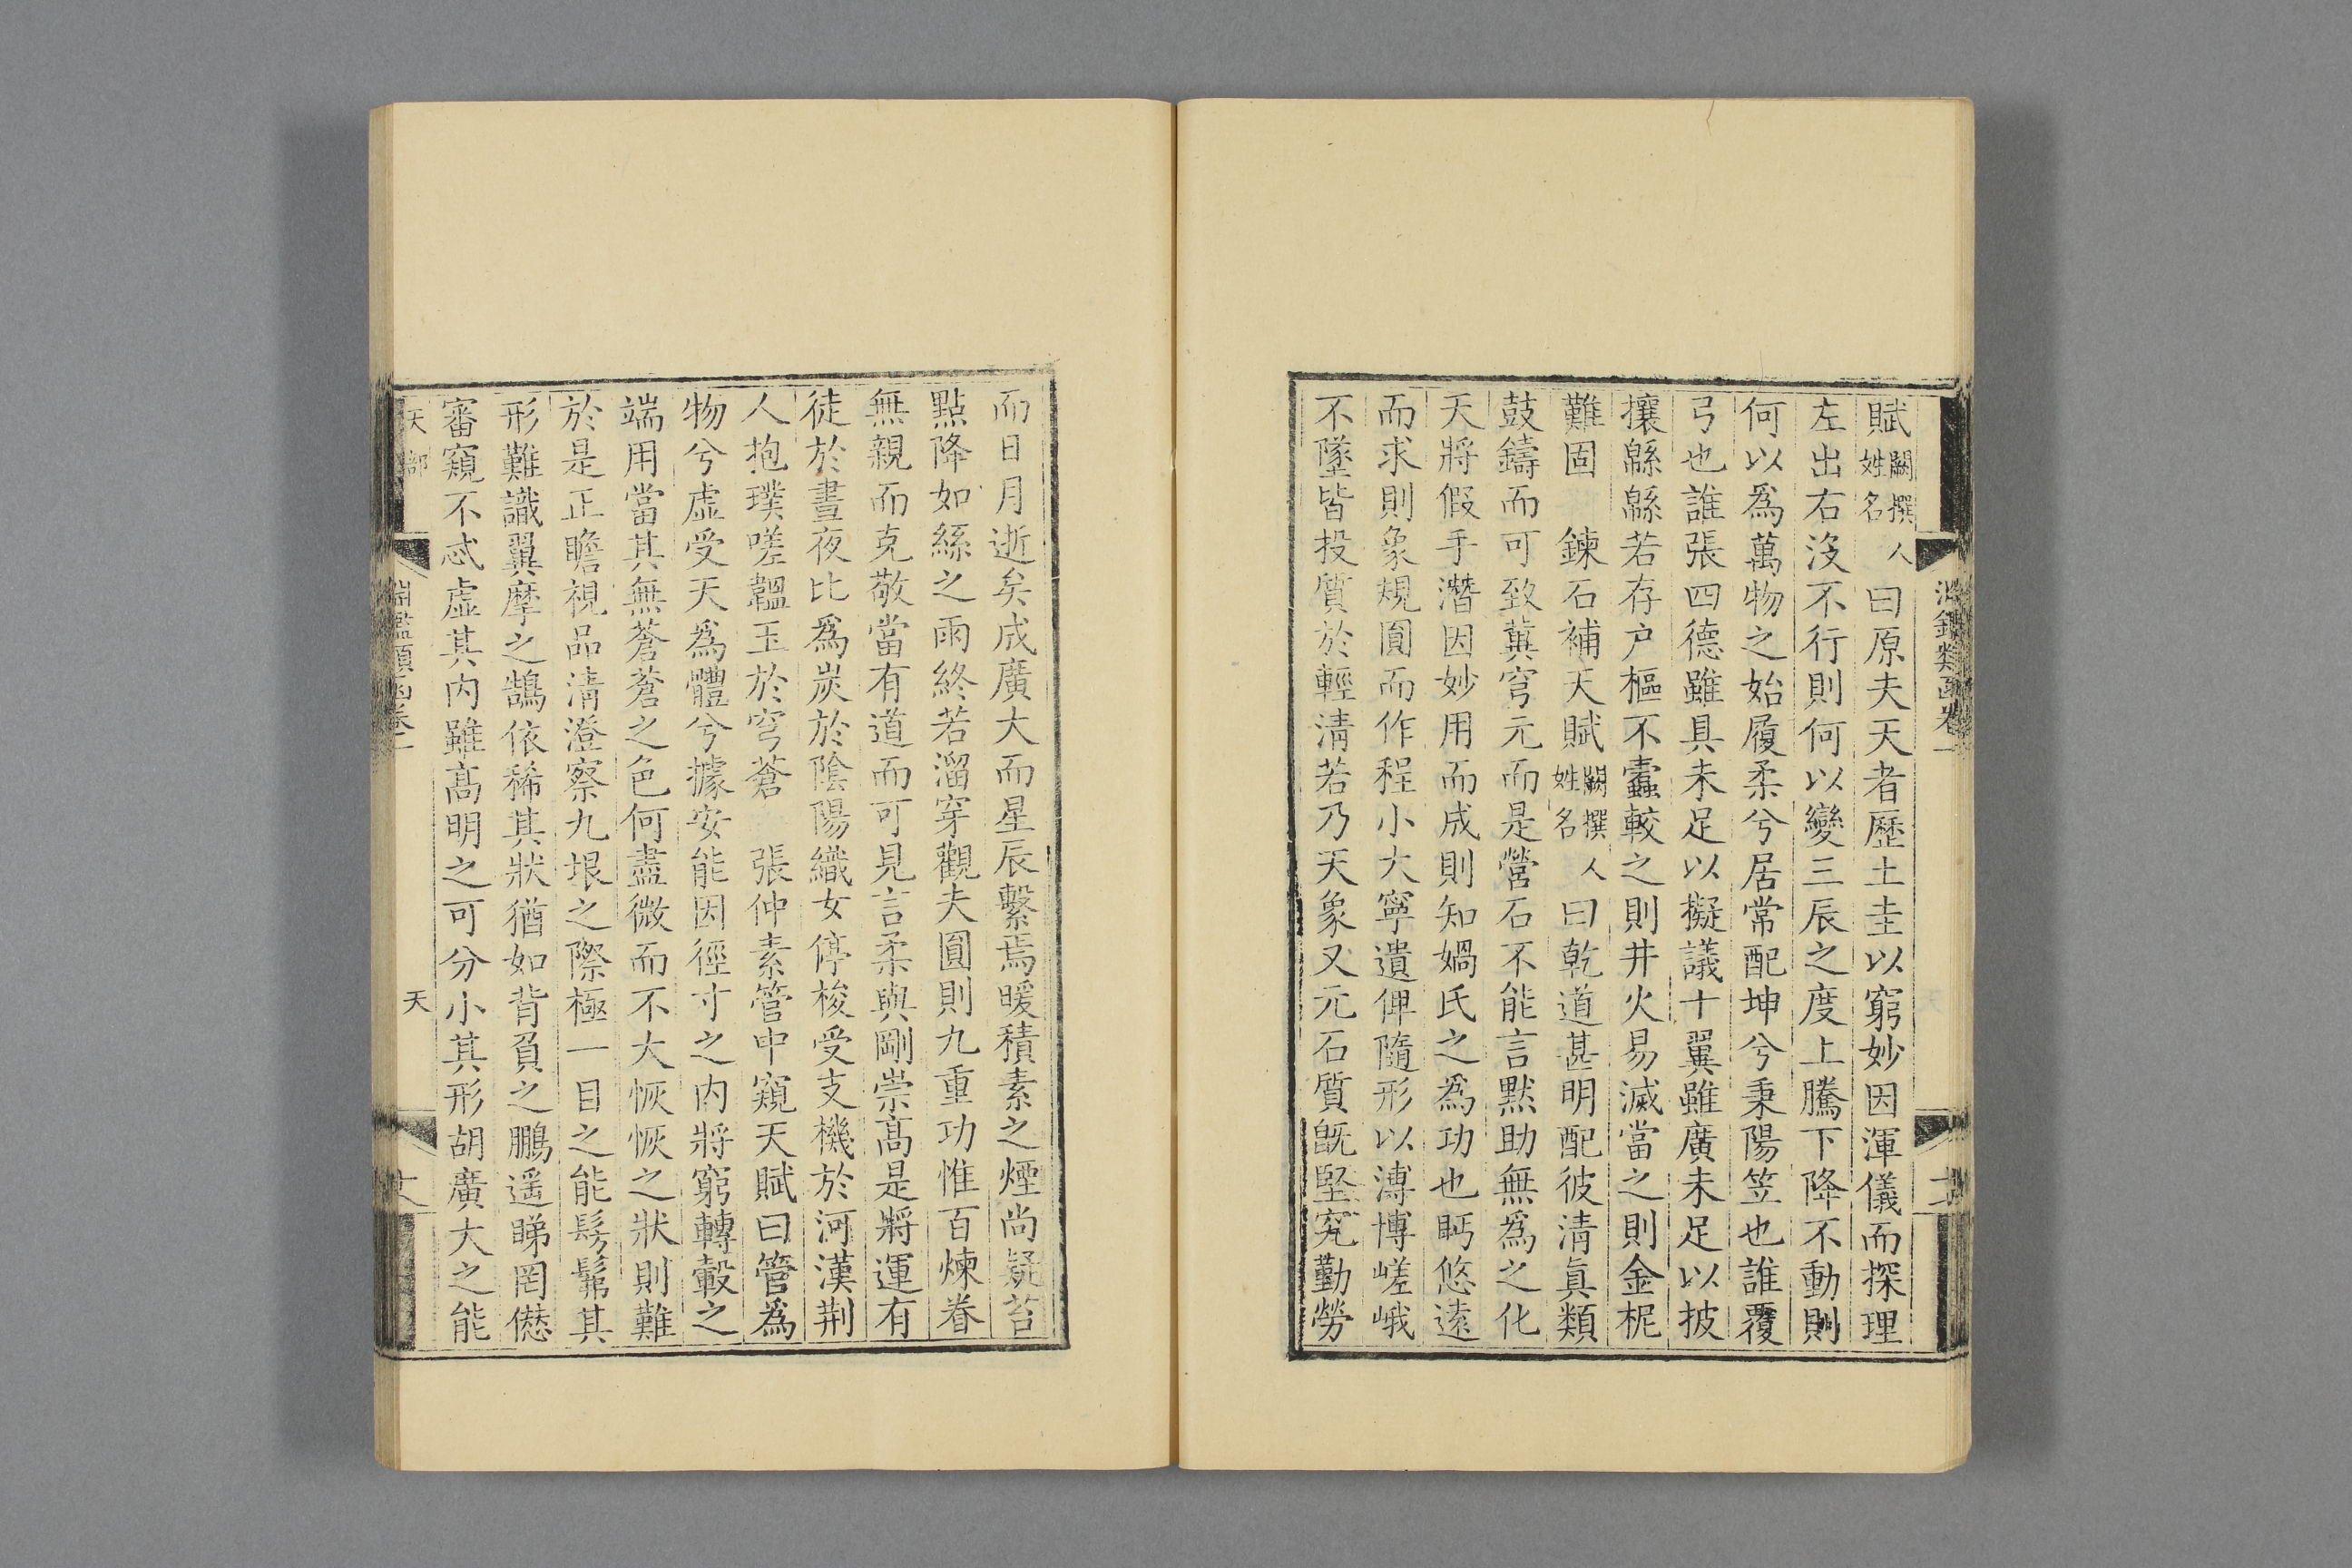 淵鑑類函卷一
賦闕撰人姓名曰原夫天者歷土圭以窮妙因渾儀而探理
左出右沒不行則何以變三辰之度上騰下降不動則
何以爲萬物之始履柔兮居常配坤兮秉陽笠也誰覆
弓也誰張四德雖具未足以擬議十翼雖廣未足以披
攘緜緜若存户樞不蠹較之則井火易滅當之則金柅
難固 鍊石補天賦闕撰人姓名曰乾道甚明配彼清眞類
鼓鑄而可致冀穹元而是營石不能言黙助無爲之化
天將假手潛因妙用而成則知媧氏之爲功也眄悠遠
而求則象規圓而作程小大寧遺俾隨形以溥博嵯峨
不墜皆投質於輕清若乃天象又元石質旣堅究勤勞
而日月逝矣成廣大而星辰繫焉暖積素之煙尚疑苔
點降如絲之雨終若溜穿觀夫圓則九重功惟百煉眷
無親而克敬當有道而可見言柔與剛崇髙是將運有
徒於晝夜比爲炭於陰陽織女停梭受支機於河漢荆
人抱璞嗟韞玉於穹蒼 張仲素管中窺天賦曰管爲
物兮虛受天爲體兮據安能因徑寸之内將窮轉轂之
端用當其無蒼蒼之色何盡微而不大恢恢之狀則難
於是正瞻視品清澄察九垠之際極一目之能髣髴其
形難識翼摩之鵠依稀其狀猶如背負之鵬遥睇罔僁
審窺不忒虛其内雖髙明之可分小其形胡廣大之能
天部
淵鑑類函卷一
天